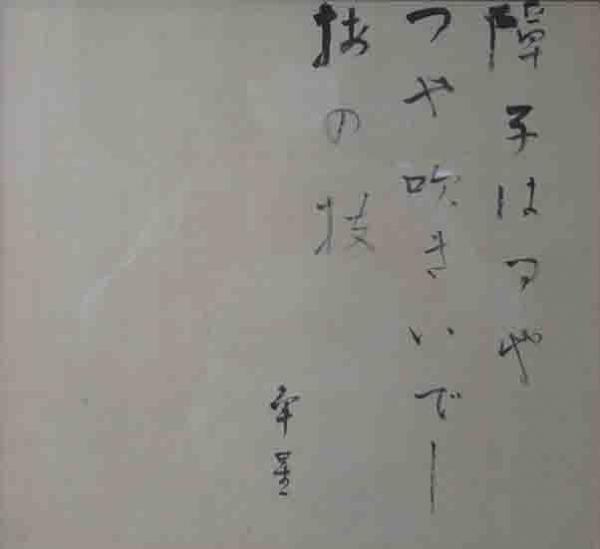 障子はつや
つや吹きいでし
の枝